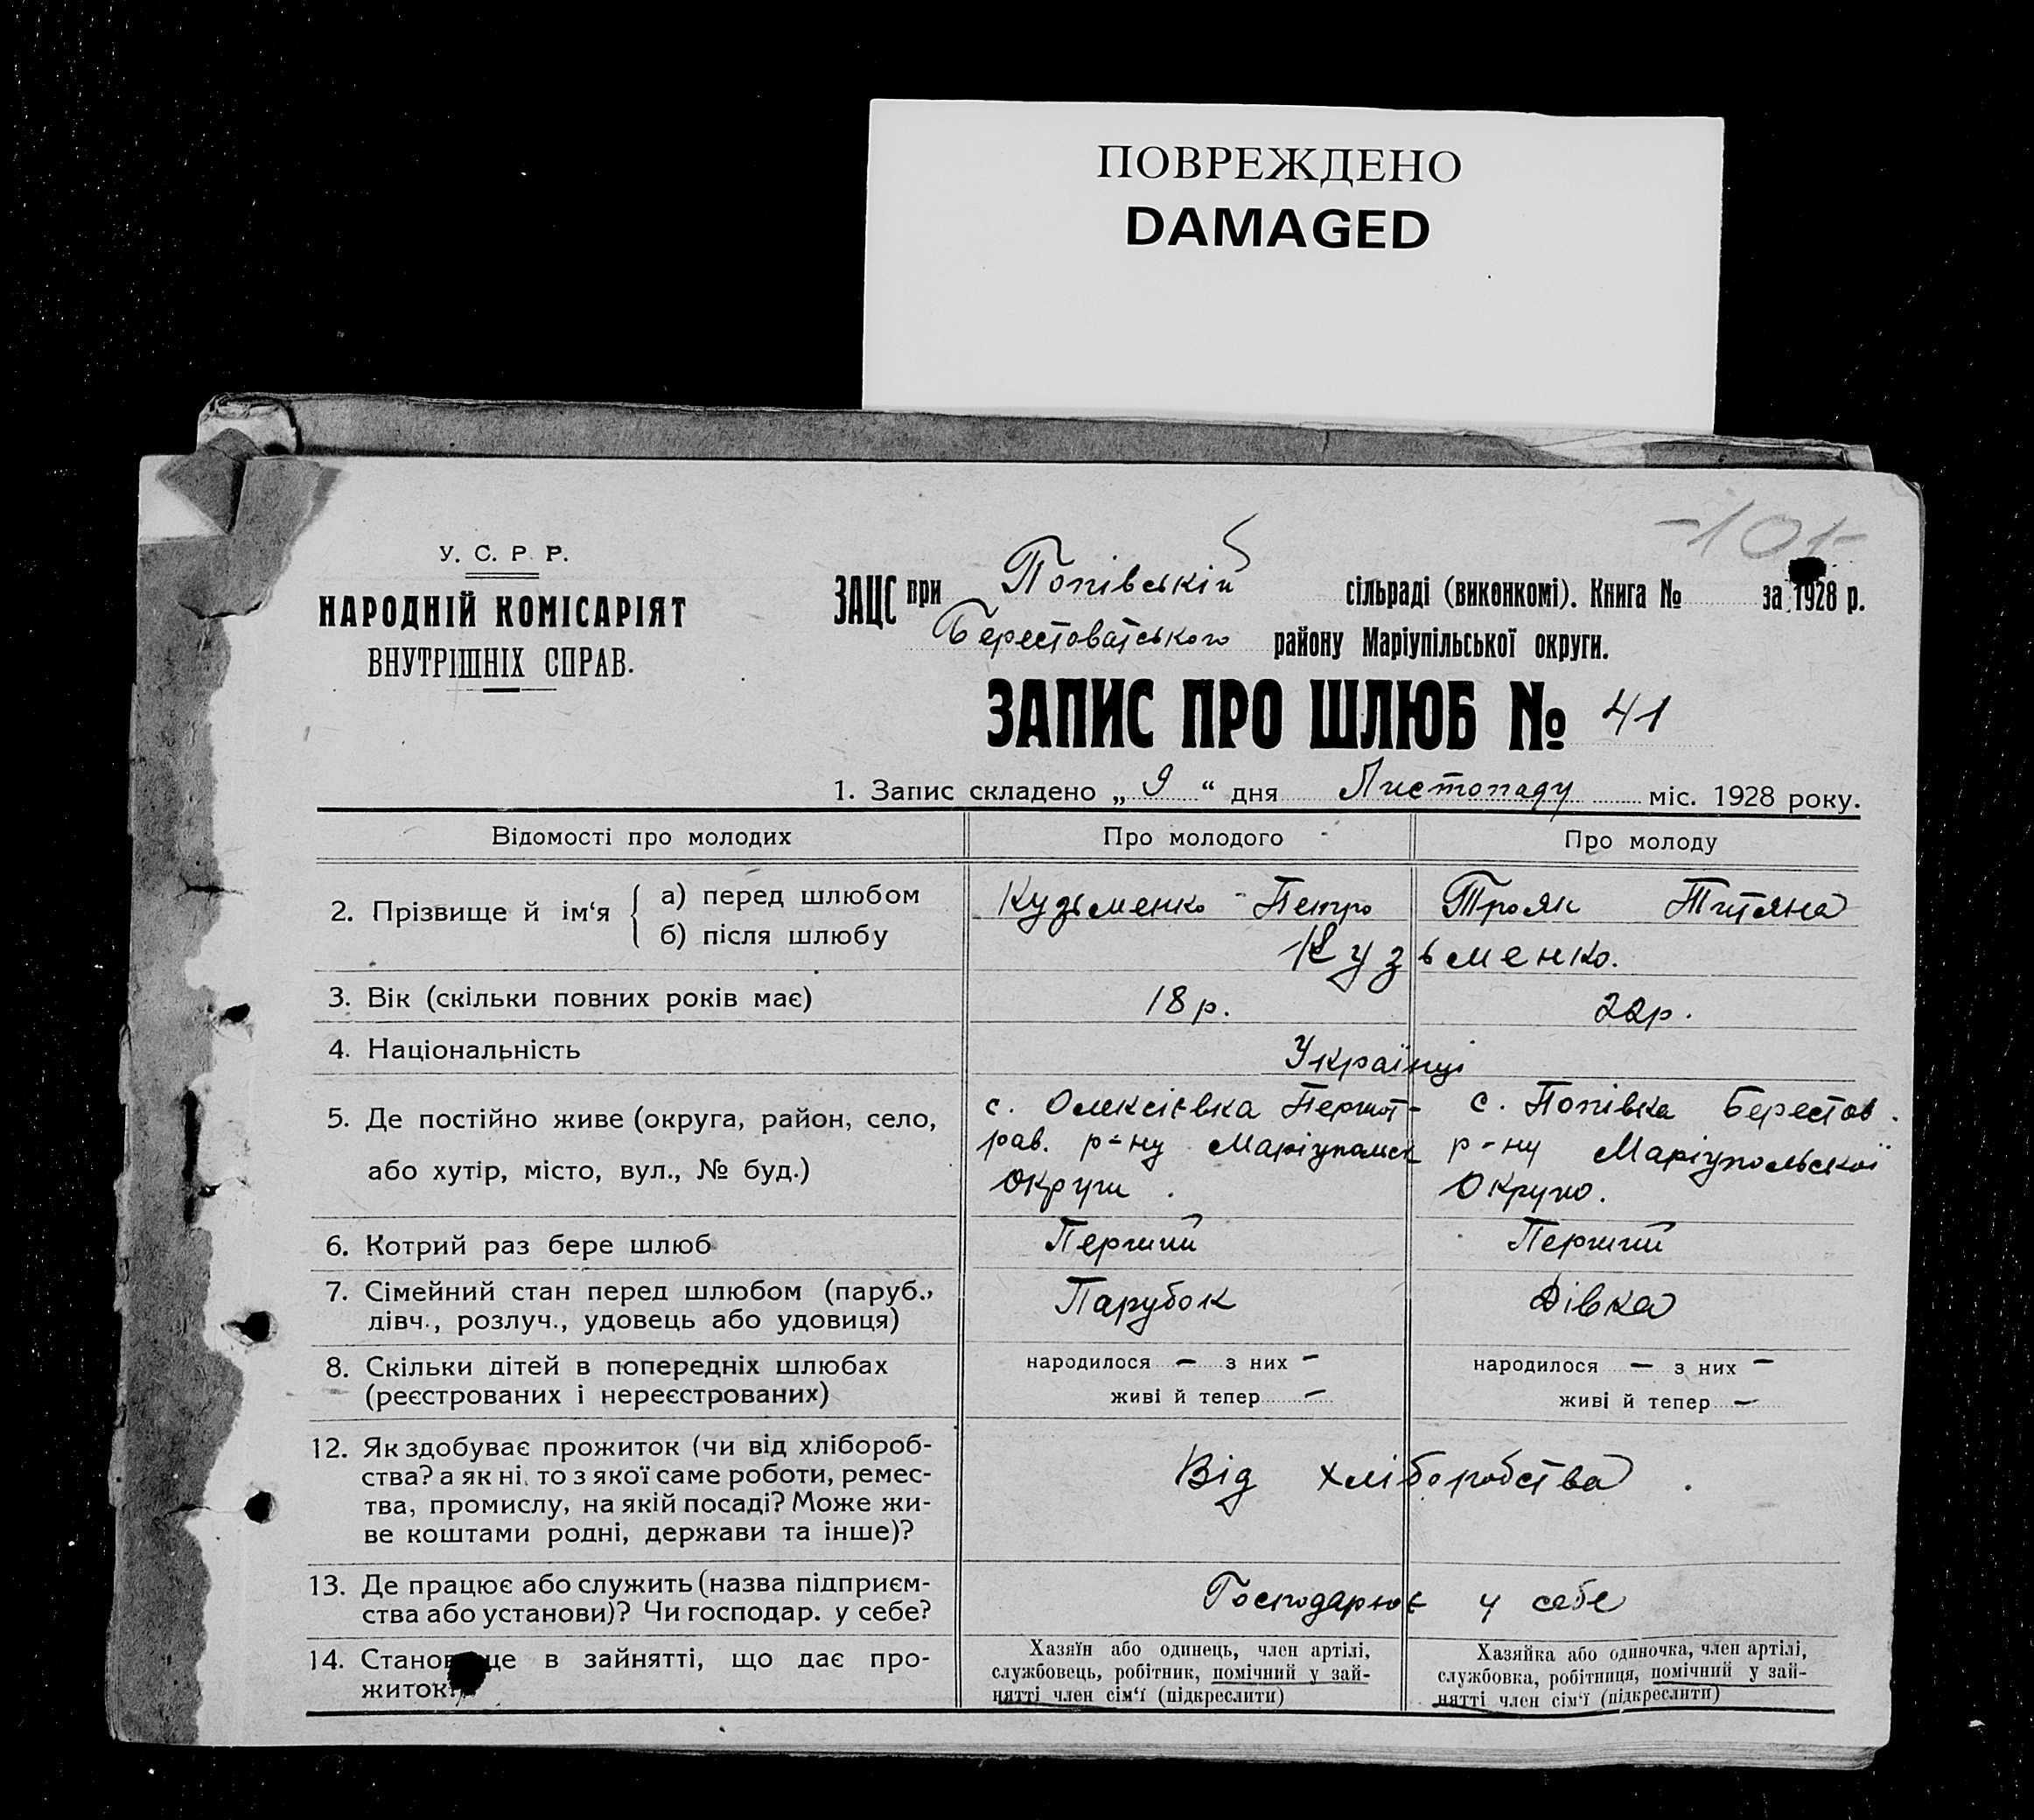 ПОВРЕЖДЕНО
DAMAGED
-101-
У. С. Р Р.
НАРОДНІЙ КОМІСАРІЯТ
ВНУТРІШНІХ СПРАВ.
ЗАЦС при Попівській сільраді (виконкомі). Книга № за 1928 р.
Берестоватського району Маріупільської округи.
ЗАПИС ПРО ШЛЮБ № 41
1. Запис складено „ 9 “ дня Листопаду міс. 1928 року.
Відомості про молодих Про молодого Про молоду
2. Прізвище й ім‘я а) перед шлюбом Кузьменко Петро Троян Титяна
б) після шлюбу Кузьменко.
3. Вік (скільки повних років має) 18 р. 22 р.
4. Національність Українці
5. Де постійно живе (округа, район, село, с. Олексіївка Першот- с. Попівка Берестов.
або хутір, місто, вул., № буд.) рав. р-ну Маріупольск р-ну Маріупольської
Округи. Округи.
6. Котрий раз бере шлюб Перший Перший
7. Сімейний стан перед шлюбом (паруб., Парубок Дівка
дівч., розлуч., удовець або удовиця)
8. Скільки дітей в попередніх шлюбах народилося — з них — народилося — з них —
(реєстрованих і нереєстрованих) живі й тепер — живі й тепер —
12. Як здобуває прожиток (чи від хлібороб-
ства? а як ні, то з якої саме роботи, ремес- Від хліборобства.
тва, промислу, на якій посаді? Може жи-
ве коштами родні, держави та інше)?
13. Де працює або служить (назва підприєм- Господарює у себе
ства або установи)? Чи господар. у себе?
14. Становище в зайнятті, що дає про- Хазяїн або одинець, член артілі, Хазяйка або одиночка, член артілі,
житок? службовець, робітник, помічний у зай- службовка, робітниця, помічний у зай-
нятті член сім‘ї (підкреслити) нятті член сім‘ї (підкреслити)